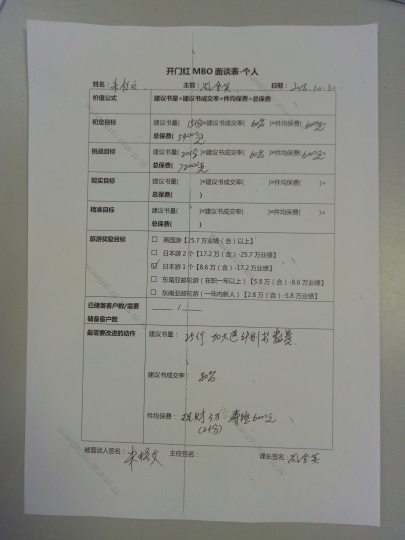 开门红 MBO 面谈表-个人
姓名: 主顾: 日期:
价值公式 建议书量×建议书成交率×件均保费=总保费
初定目标 建议书量( 15份 )×建议书成交率( 60% )×件均保费( 6000元 )=
总保费( 54000元 )
挑战目标 建议书量( 20份 )×建议书成交率( 60% )×件均保费( 6000元 )=
总保费( 72000元 )
现实目标 建议书量( )×建议书成交率( )×件均保费( )=
总保费( )
精准目标 建议书量( )×建议书成交率( )×件均保费( )=
总保费( )
旅游奖励目标 □ 英国游【25.7 万业绩(含)以上】
□ 日本游 2 个【17.2 万(含)-25.7 万业绩】
☑ 日本游 1 个【8.6 万(含)-17.2 万业绩】
□ 东南亚邮轮游(在职一年以上)【5.8 万(含)-8.6 万业绩】
□ 东南亚邮轮游(一年内新人)【2.8 万(含)-5.8 万业绩】
已储备客户数/需要
储备客户数 /
最需要改进的动作 建议书量: 25份 加大
建议书成交率: 80%
件均保费: 理财3万 寿险6000元
被面谈人签名: 主任签名: 课长签名: